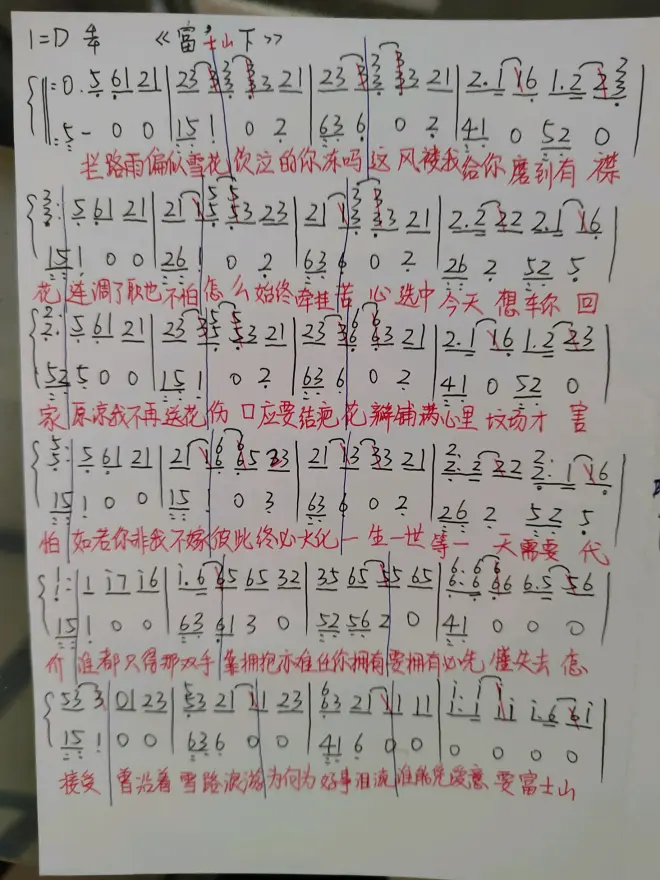 1=D 4/4 《富士山下》
0. 5 61 21 | 23 3 3 3 21 | 23 3 3 3 21 | 2. 1 16 1. 2 2
5 - 0 0 | 15 1 0 2 | 63 6 0 2 | 41 0 52 0
拦路雨偏似雪花饮泣的你冻吗这风褛我给你磨到有襟
5 61 21 | 21 1 53 23 | 21 1 3 21 | 2. 2 22 2. 1 16
15 1 0 0 | 26 1 0 2 | 63 6 0 2 | 26 2 52 5
花连调了职也不怕怎么始终牵挂苦心选中今天想车你回
5 61 21 | 23 3 53 21 | 23 3 3 21 | 2. 1 16 1. 2 23
52 5 0 0 | 15 1 0 2 | 63 6 0 2 | 41 0 52 0
家原谅我不再送花伤口应要结疤花瓣铺满心里坟场才害
5 61 21 | 21 1 65 23 | 21 1 3 3 21 | 2. 2 22 2. 1 16
15 1 0 0 | 15 1 0 3 | 63 6 0 2 | 26 2 52 5
怕如若你非我不嫁彼此终必火化一生一世等一天需要代
1 i7 i6 | i. 6 65 65 32 | 35 65 55 65 | 6. 6 66 6. 5 56
15 1 0 0 | 63 61 3 0 | 52 56 2 0 | 41 0 0 0
价谁都只得那双手靠拥抱亦难任你拥有要拥有必先懂失去怎
53 3 01 23 | 53 21 11 23 | 63 21 11 11 | i. i ii i. 6 6i
15 1 0 0 | 63 6 0 0 | 41 6 0 0 | 0 0 0 0
接受曾沿着雪路浪游为何为好事泪流谁能凭爱意要富士山